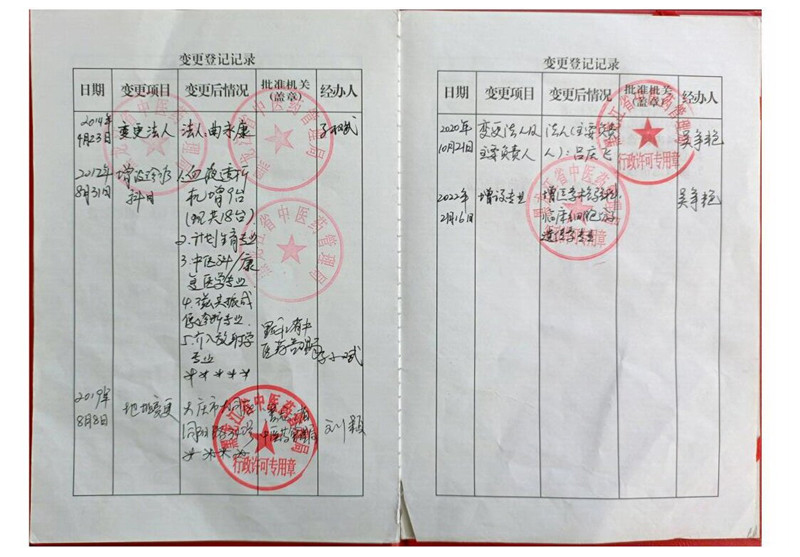 变更登记记录
日期 变更项目 变更后情况 批准机关(盖章) 经办人
4月23日 变更法人 法人:曲永
8月31日 增设诊疗科目 1.血液透析机增9台(现共18台)
2.计划生育专业
3.中医科/康复医学专业
4.磁共振成像诊断专业
5.介入放射学专业
*****
黑龙江省中医药管理局
2019年8月8日 地址变更 大庆市大同区
刘颖
黑龙江省中医药管理局
行政许可专用章
变更登记记录
日期 变更项目 变更后情况 批准机关(盖章) 经办人
2020年10月21日 变更法人及主要负责人 法人(主要负责人):吕庆飞 吴争艳
2022年2月16日 增设专业 增医学检验科:临床细胞分子遗传学专业 吴争艳
黑龙江省中医药管理局
行政许可专用章